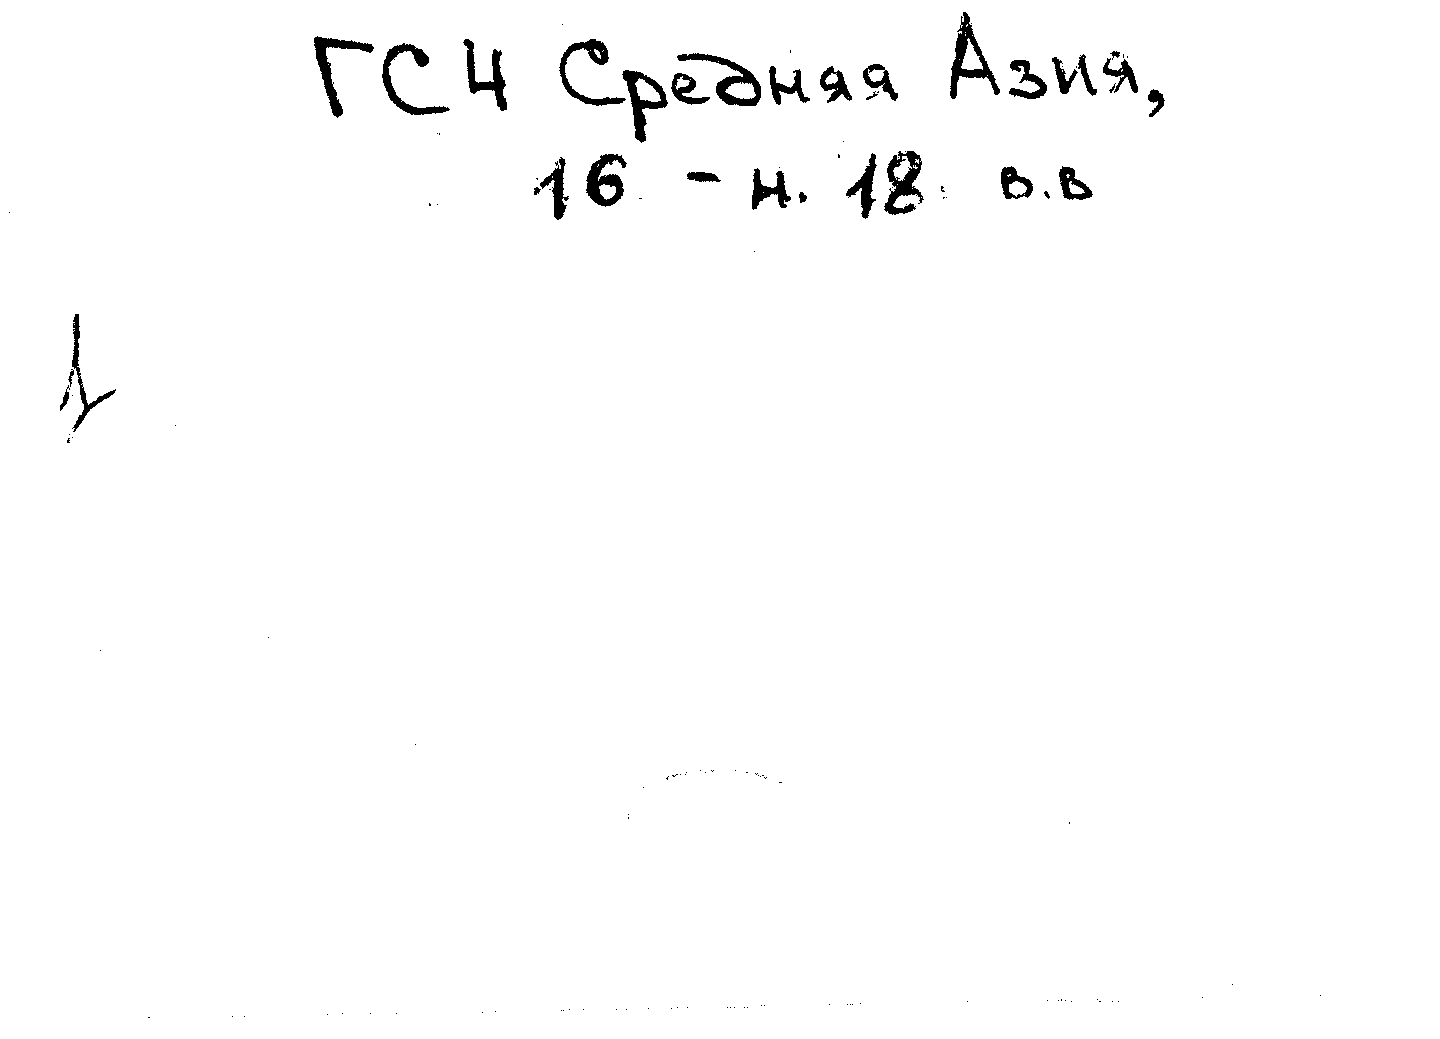 ГСЧ Средняя Азия,
16 - н. 18 в.в